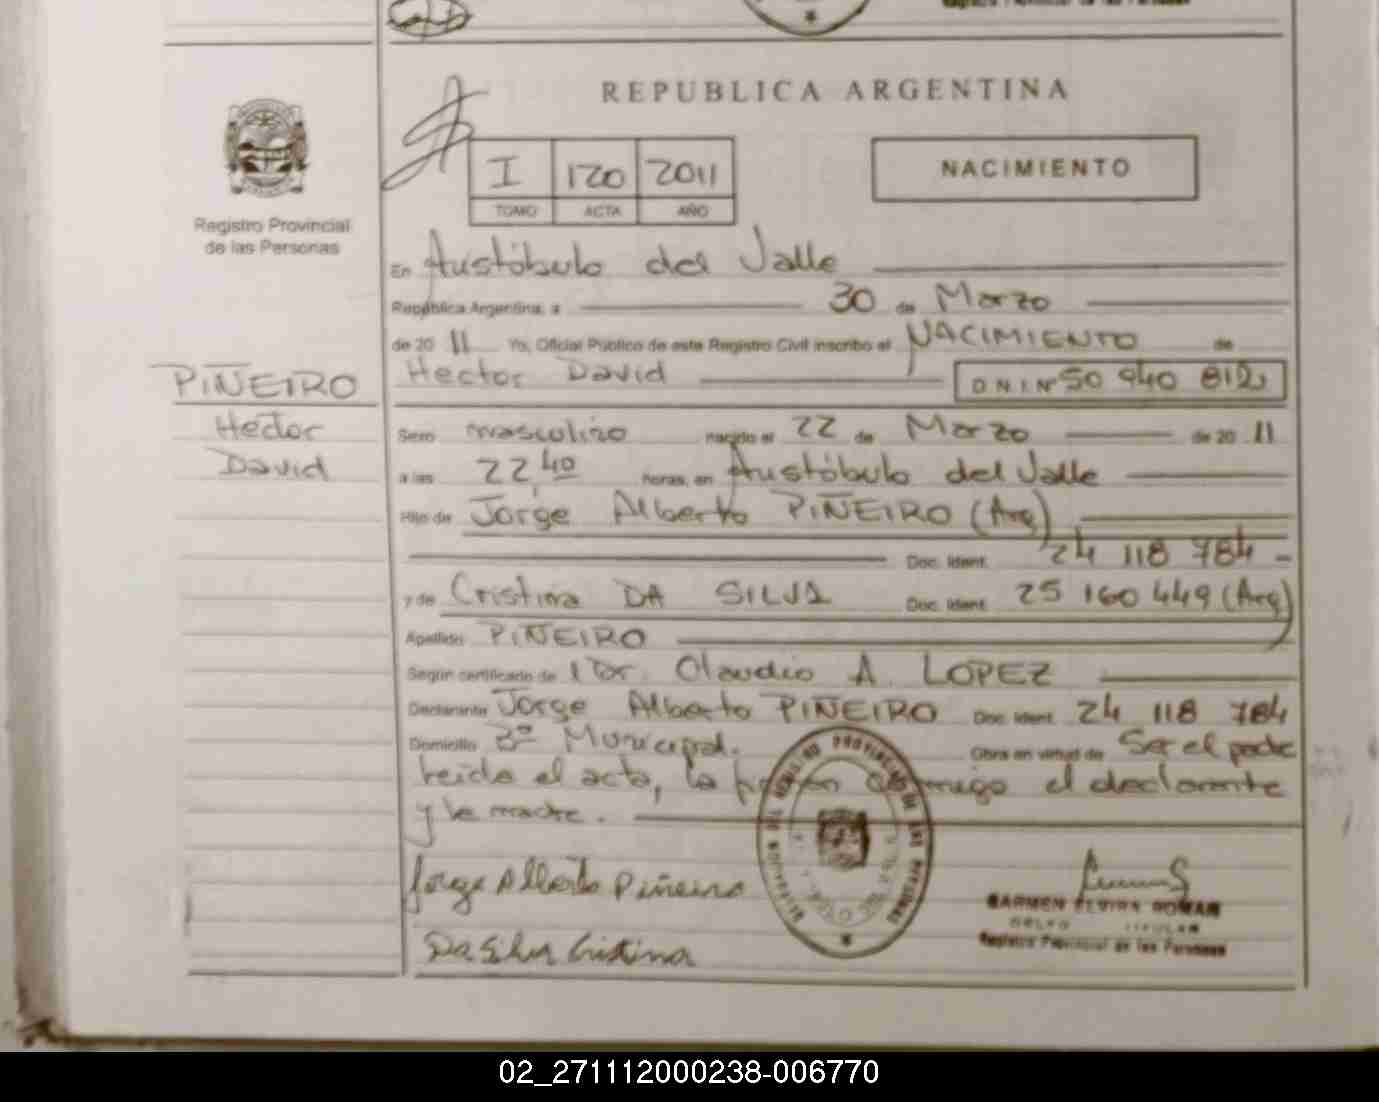 Registro Provincial de las Personas
REPUBLICA ARGENTINA
I 120 2011
TOMO ACTA AÑO
NACIMIENTO
Registro Provincial
de las Personas
En Aristóbulo del Valle
República Argentina, a 30 de Marzo
de 20 11 Yo, Oficial Público de este Registro Civil inscribo el NACIMIENTO de
Hector David D N I Nº 50 940 812
PIÑEIRO
Hector
David
Sexo masculino nacido el 22 de Marzo de 20 11
a las 22,40 horas, en Aristóbulo del Valle
Hijo de Jorge Alberto PIÑEIRO (Arg)
Doc. Ident. 24 118 784 -
y de Cristina DA SILVA Doc. Ident. 25 160 449 (Arg)
Apellido PIÑEIRO
Según certificado de l Dr. Claudio A. LOPEZ
Declarante Jorge Alberto PIÑEIRO Doc. Ident. 24 118 784
Domicilio Bº Municipal. Obra en virtud de Ser el padre
leída el acta, la firman conmigo el declarante
y la madre.
Jorge Alberto Piñeiro
Da Silva Cristina
REGISTRO PROVINCIAL DE LAS PERSONAS
CARMEN ELVIRA ROMAN
TITULAR
Registro Provincial de las Personas
02_271112000238-006770